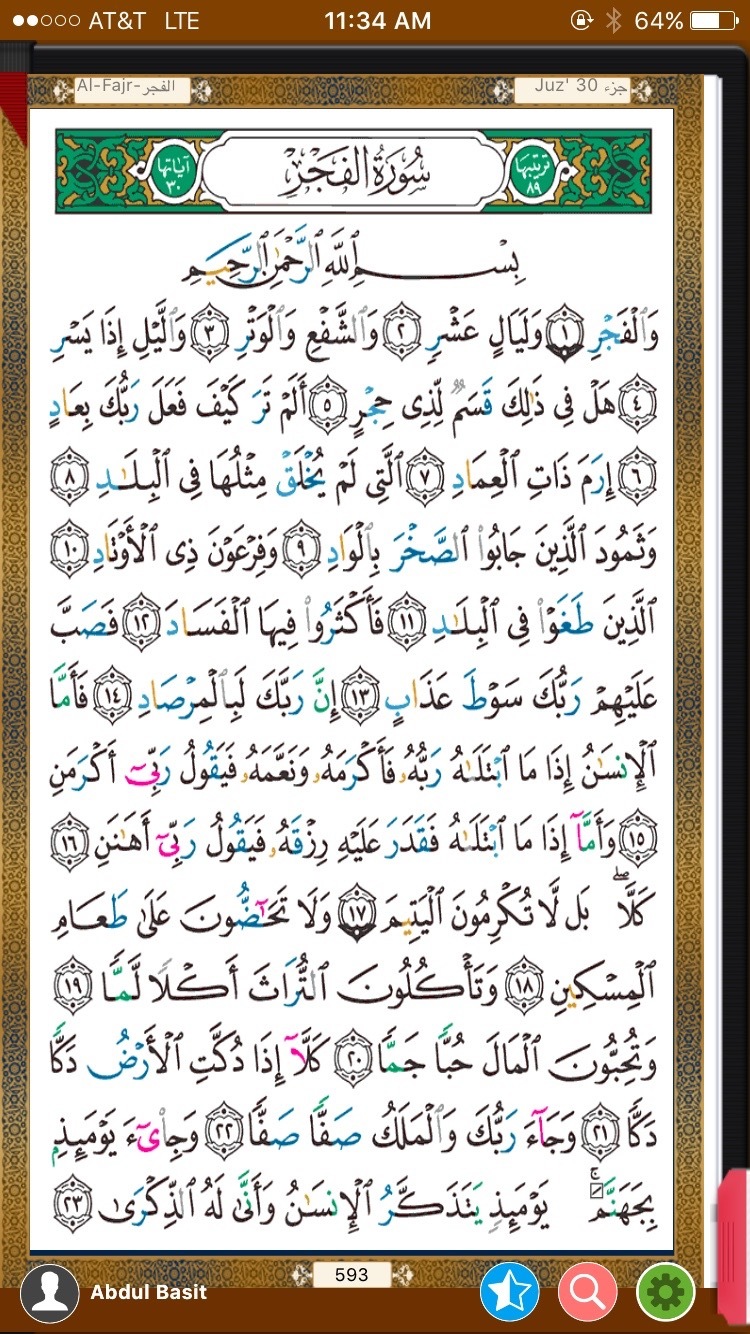 AT&T LTE 11:34 AM 64%
Al-Fajr-الفجر Juz' 30 جزء
سُورَةُ الفَجْرِ ترتيبها ٨٩ آياتها ٣٠
بِسْمِ ٱللَّهِ ٱلرَّحْمَٰنِ ٱلرَّحِيمِ
وَٱلْفَجْرِ ١ وَلَيَالٍ عَشْرٍ ٢ وَٱلشَّفْعِ وَٱلْوَتْرِ ٣ وَٱلَّيْلِ إِذَا يَسْرِ
٤ هَلْ فِى ذَٰلِكَ قَسَمٌ لِّذِى حِجْرٍ ٥ أَلَمْ تَرَ كَيْفَ فَعَلَ رَبُّكَ بِعَادٍ
٦ إِرَمَ ذَاتِ ٱلْعِمَادِ ٧ ٱلَّتِى لَمْ يُخْلَقْ مِثْلُهَا فِى ٱلْبِلَٰدِ ٨
وَثَمُودَ ٱلَّذِينَ جَابُوا۟ ٱلصَّخْرَ بِٱلْوَادِ ٩ وَفِرْعَوْنَ ذِى ٱلْأَوْتَادِ ١٠
ٱلَّذِينَ طَغَوْا۟ فِى ٱلْبِلَٰدِ ١١ فَأَكْثَرُوا۟ فِيهَا ٱلْفَسَادَ ١٢ فَصَبَّ
عَلَيْهِمْ رَبُّكَ سَوْطَ عَذَابٍ ١٣ إِنَّ رَبَّكَ لَبِٱلْمِرْصَادِ ١٤ فَأَمَّا
ٱلْإِنسَٰنُ إِذَا مَا ٱبْتَلَىٰهُ رَبُّهُۥ فَأَكْرَمَهُۥ وَنَعَّمَهُۥ فَيَقُولُ رَبِّىٓ أَكْرَمَنِ
١٥ وَأَمَّآ إِذَا مَا ٱبْتَلَىٰهُ فَقَدَرَ عَلَيْهِ رِزْقَهُۥ فَيَقُولُ رَبِّىٓ أَهَٰنَنِ ١٦
كَلَّا ۖ بَل لَّا تُكْرِمُونَ ٱلْيَتِيمَ ١٧ وَلَا تَحَٰٓضُّونَ عَلَىٰ طَعَامِ
ٱلْمِسْكِينِ ١٨ وَتَأْكُلُونَ ٱلتُّرَاثَ أَكْلًا لَّمًّا ١٩
وَتُحِبُّونَ ٱلْمَالَ حُبًّا جَمًّا ٢٠ كَلَّآ إِذَا دُكَّتِ ٱلْأَرْضُ دَكًّا
دَكًّا ٢١ وَجَآءَ رَبُّكَ وَٱلْمَلَكُ صَفًّا صَفًّا ٢٢ وَجِا۟ىٓءَ يَوْمَئِذٍۭ
بِجَهَنَّمَ ۚ يَوْمَئِذٍ يَتَذَكَّرُ ٱلْإِنسَٰنُ وَأَنَّىٰ لَهُ ٱلذِّكْرَىٰ ٢٣
593
Abdul Basit